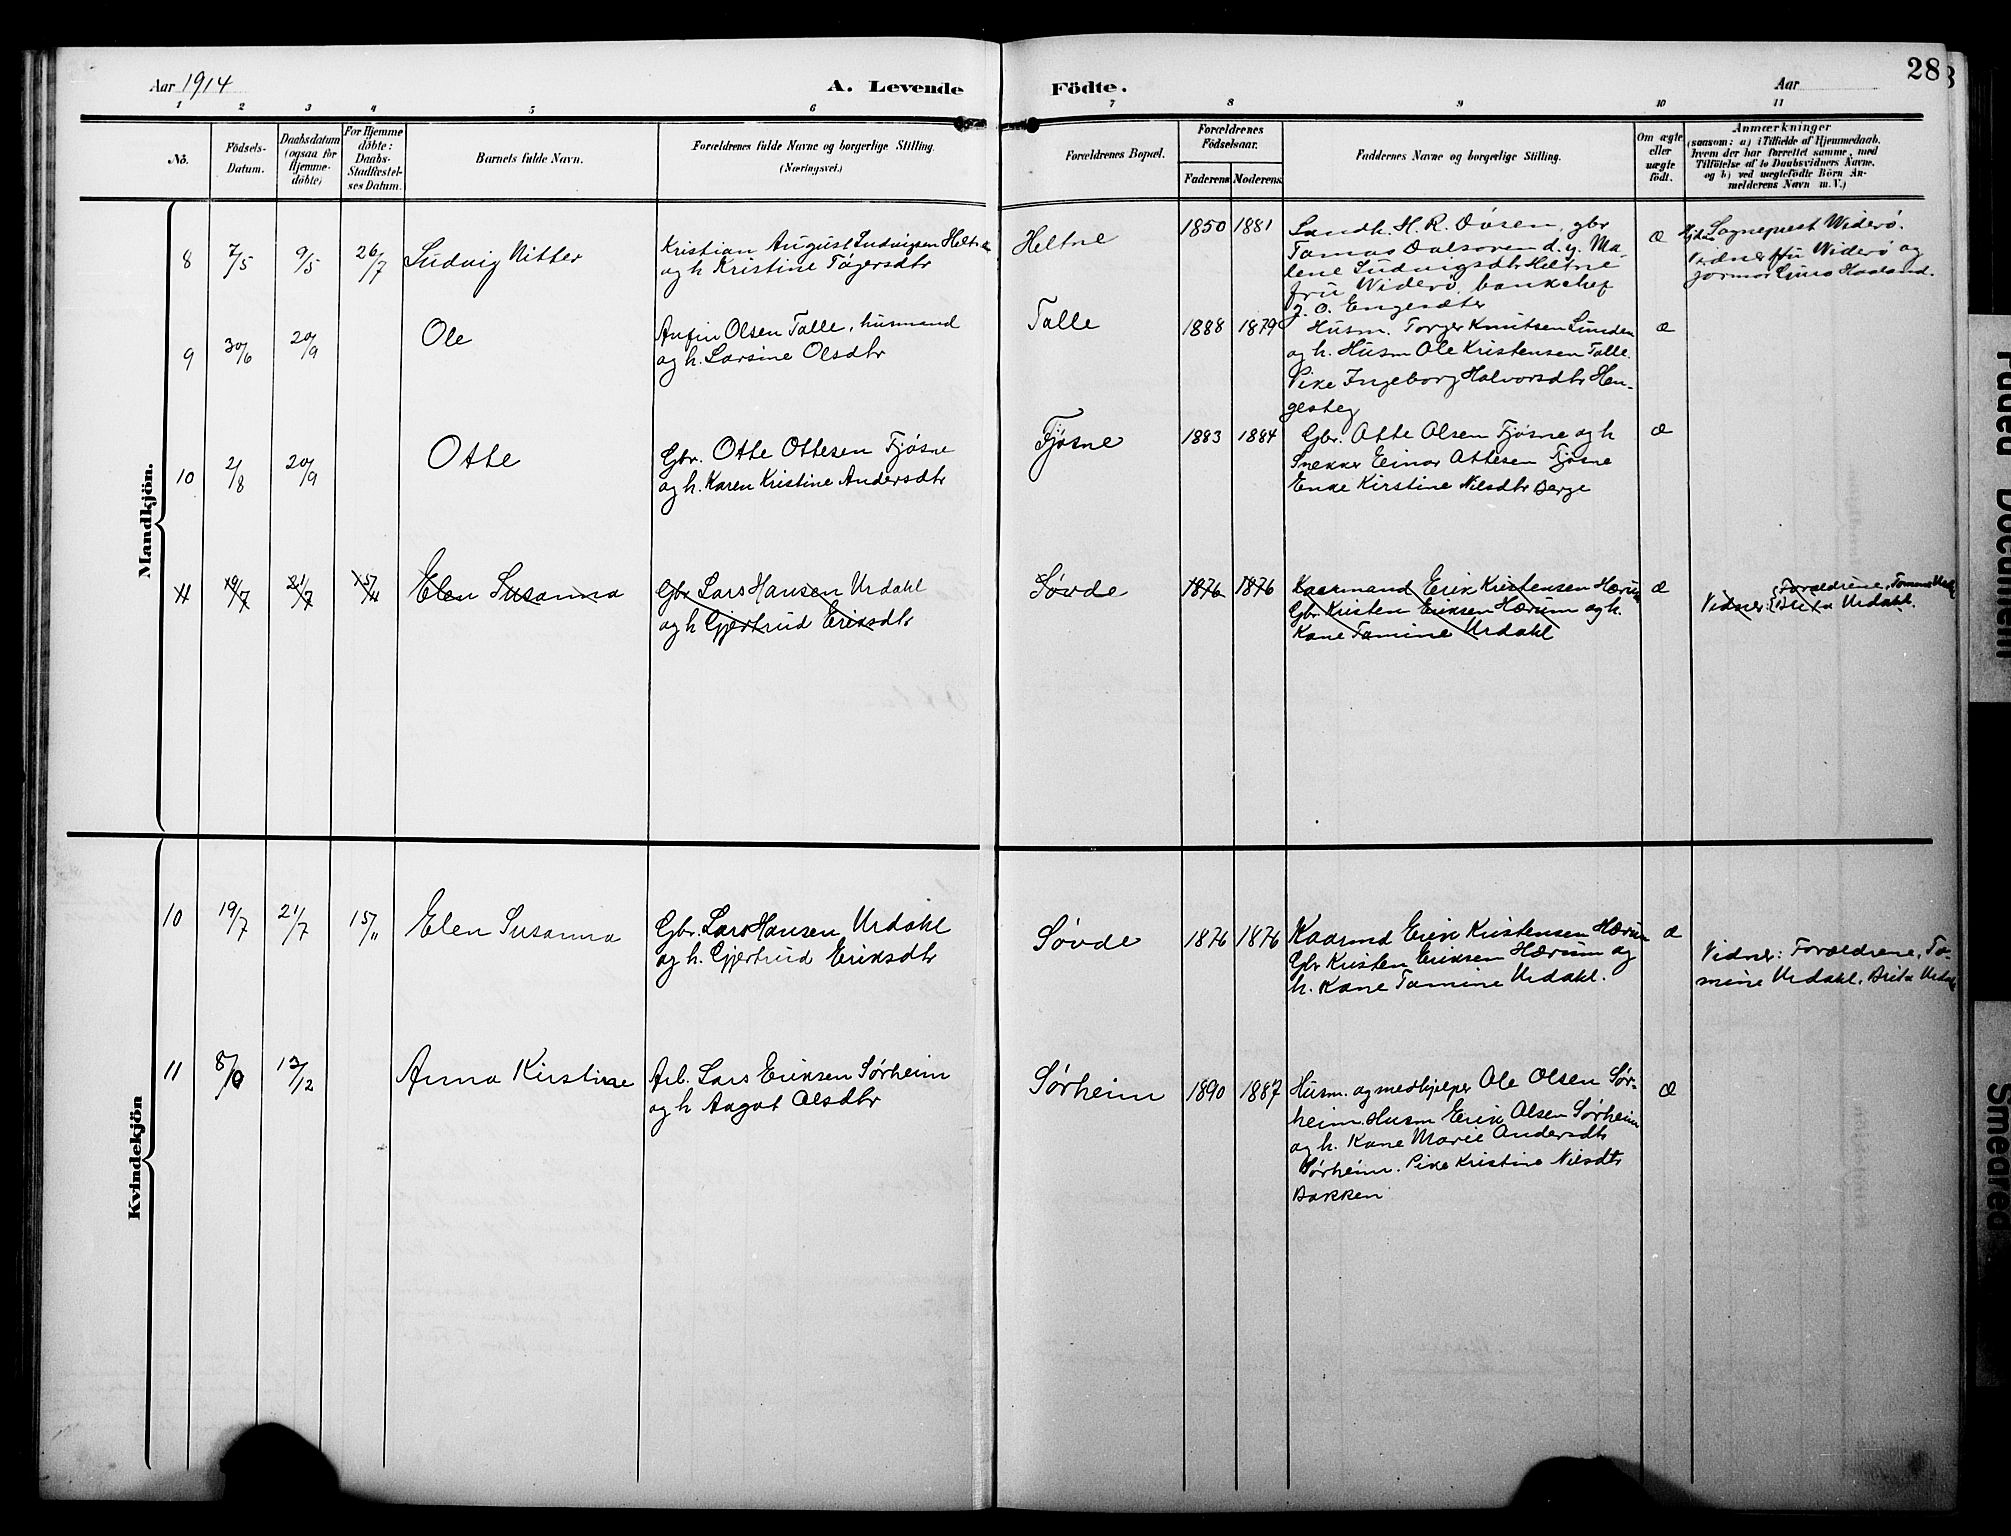 Aar 1914
A. Levende
Födte.
Aar
28
1 2 3 4 5 6 7 8 9 10 11
No.
Födsels-
Datum.
Daabsdatum
(ogsaa for
Hjemme-
döbte)
For Hjemme
döbte:
Daabs-
Stadfæstel-
ses Datum.
Barnets fulde Navn.
Forældrenes fulde Navne og borgerlige Stilling.
(Næringsvei.)
Forældrenes Bopæl.
Forældrenes
Födselsaar.
Faderens
Moderens
Faddernes Navne og borgerlige Stilling.
Om ægte
eller
uægte
födt.
Anmærkninger
(saasom: a) i Tilfælde af Hjemmedaab,
hvem der har forrettet samme, med
Tilföielse af to Daabsvidners Navne,
og b) ved uægtefödte Börn An-
melderens Navn m. V.)
Mandkjön.
8 7/5 9/5 26/7 Ludvig Ritter
Kristian August Ludvigsen Heltne
og h Kristine Tøgersdtr
Heltne
1850 1881
Landh. H. R. Døsen, gbr
Tomas Dalsøren d. y. Ma-
lene Ludvigsdtr Heltne
fru Widerö, bankchef
J. O. Engesæter
æ
Sognepræst Widerö.
fru Widerö og
jormor Guro Haaland.
9 30/6 20/9 Ole
Anfin Olsen Talle, husmand
og h. Larsine Olsdtr
Talle
1888 1879
Husm. Torger Knutsen Linden
og h. Husm Ole Kristensen Talle.
Pike Ingeborg Halvorsdtr Hen-
gesteg
æ
10 2/8 20/9 Otte
Gbr. Otte Ottesen Fjøsne
og h. Karen Kristine Andersdtr
Fjøsne
1883 1884
Gbr. Otte Olsen Fjøsne og h
Snekker Einar Ottesen Fjøsne
Enke Kirstine Nilsdtr Berge
æ
11 19/7 21/7 15/11 Elen Susanna
Gbr Lars Hansen Urdahl
og h Gjertrud Eriksdtr
Søvde
1876 1876
Kaarmand Erik Kristensen Hærum
Gbr Kristen Eriksen Hærum og h.
Kone Tomine Urdahl
æ
Vidner: Forældrene,
Brita Urdahl.
Kvindekjön
10 19/7 21/7 15/11 Elen Susanna
Gbr. Lars Hansen Urdahl
og h. Gjertrud Eriksdtr
Søvde
1876 1876
Kaarmd Erik Kristensen Hærum
Gbr Kristen Eriksen Hærum og
h. Kone Tomine Urdahl.
æ
Vidner: Forældrene, To-
mine Urdahl, Brita Urdahl
11 8/10 13/12 Anna Kirstine
Arb. Lars Eriksen Sørheim
og h Aagot Olsdtr
Sørheim
1890 1887
Husm. og medhjelper Ole Olsen Sør-
heim. Husm Erik Olsen Sørheim
og h. Kone Marie Andersdtr
Sørheim. Pike Kristine Nilsdtr
Bakken
æ
Faded Document
Smeared